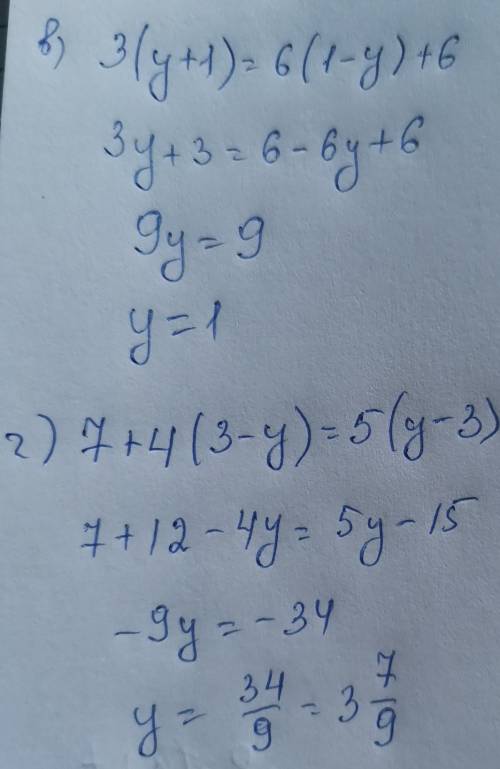 в) 3(y+1)=6(1-y)+6
3y+3=6-6y+6
9y=9
y=1
г) 7+4(3-y)=5(y-3)
7+12-4y=5y-15
-9y=-34
y=34/9=3 7/9